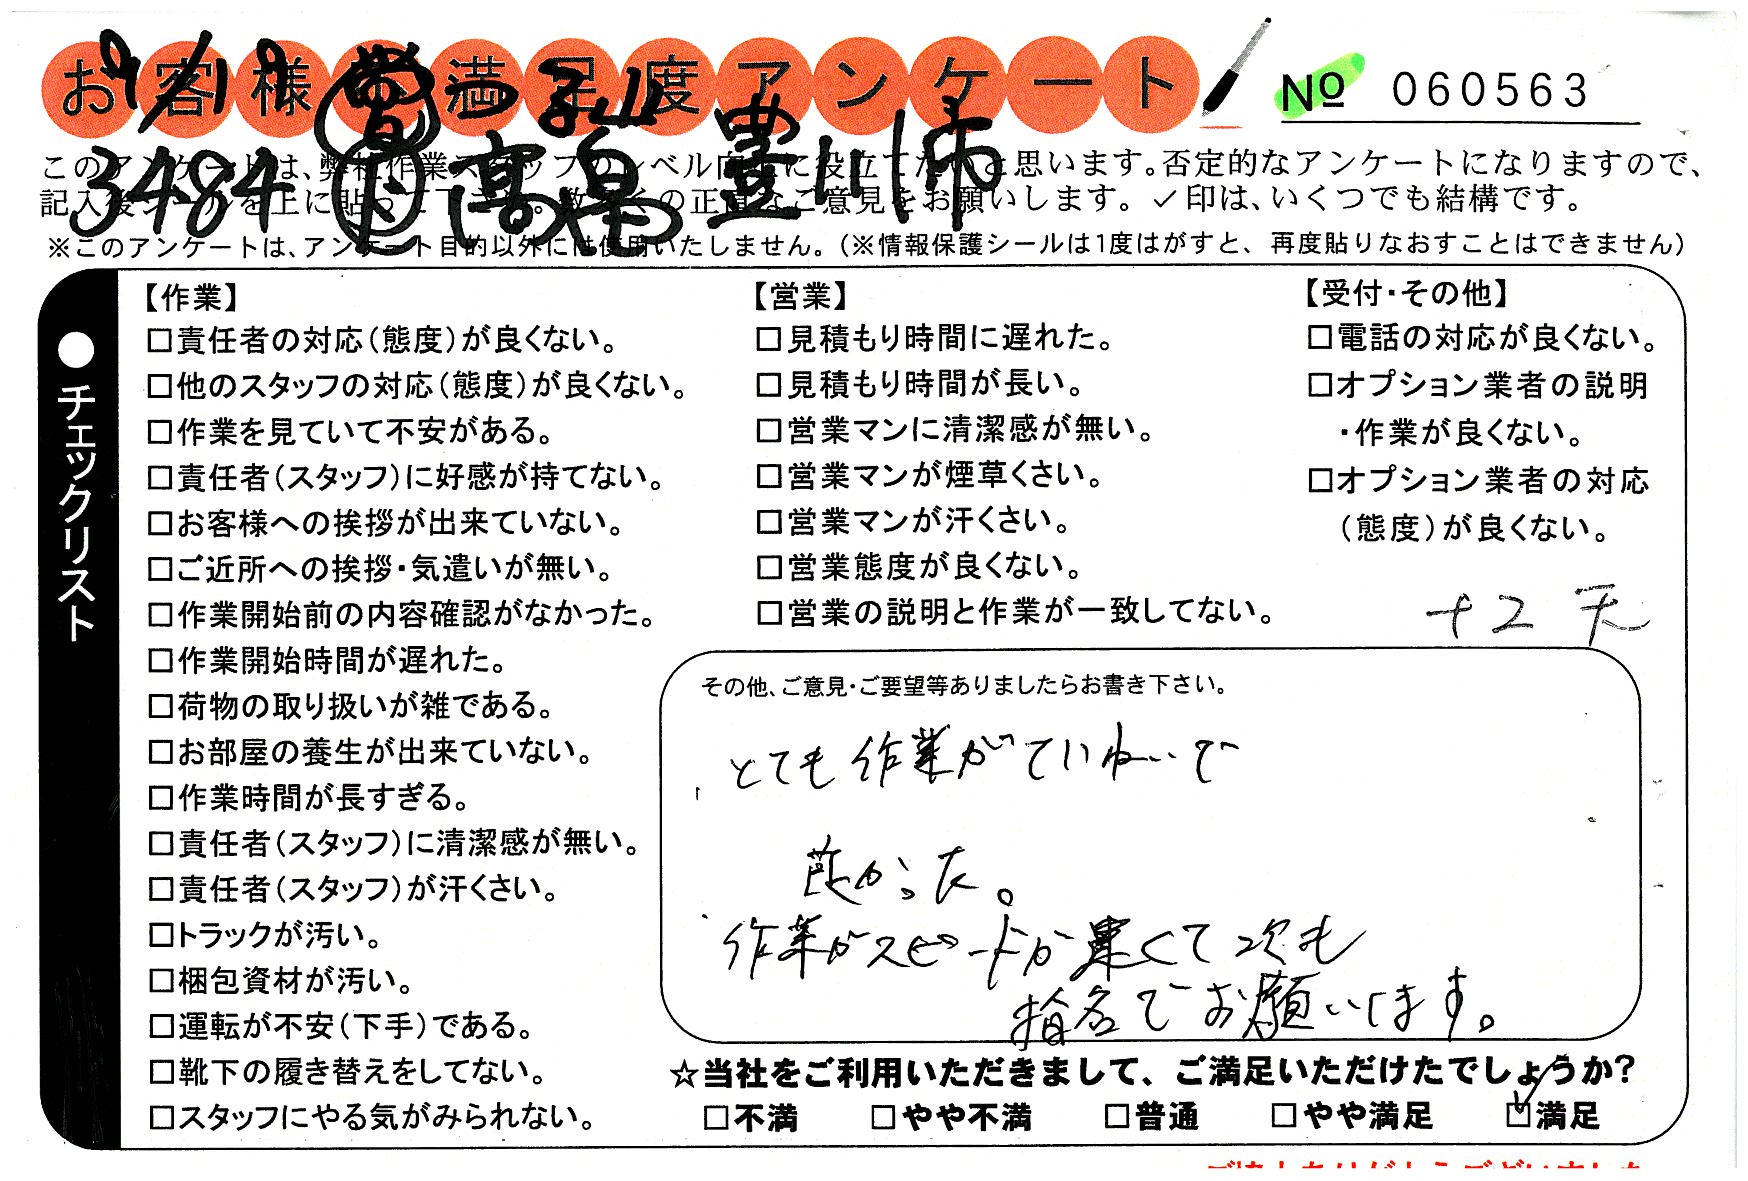 お客様の満足度アンケート
№ 060563
9/19
3484 高畠 豊川市
このアンケートは、弊社作業スタッフのレベル向上に役立てたいと思います。否定的なアンケートになりますので、
記入後シールを上に貼って下さい。数多くの正直なご意見をお願いします。✓印は、いくつでも結構です。
※このアンケートは、アンケート目的以外には使用いたしません。(※情報保護シールは1度はがすと、再度貼りなおすことはできません)
●チェックリスト
【作業】
□責任者の対応(態度)が良くない。
□他のスタッフの対応(態度)が良くない。
□作業を見ていて不安がある。
□責任者(スタッフ)に好感が持てない。
□お客様への挨拶が出来ていない。
□ご近所への挨拶・気遣いが無い。
□作業開始前の内容確認がなかった。
□作業開始時間が遅れた。
□荷物の取り扱いが雑である。
□お部屋の養生が出来ていない。
□作業時間が長すぎる。
□責任者(スタッフ)に清潔感が無い。
□責任者(スタッフ)が汗くさい。
□トラックが汚い。
□梱包資材が汚い。
□運転が不安(下手)である。
□靴下の履き替えをしてない。
□スタッフにやる気がみられない。
【営業】
□見積もり時間に遅れた。
□見積もり時間が長い。
□営業マンに清潔感が無い。
□営業マンが煙草くさい。
□営業マンが汗くさい。
□営業態度が良くない。
□営業の説明と作業が一致してない。
【受付・その他】
□電話の対応が良くない。
□オプション業者の説明
・作業が良くない。
□オプション業者の対応
(態度)が良くない。
+2 天
その他、ご意見・ご要望等ありましたらお書き下さい。
とても作業がていねいで
良かった。
作業がスピードが早くて次も
指名でお願いします。
☆当社をご利用いただきまして、ご満足いただけたでしょうか?
□不満 □やや不満 □普通 □やや満足 ☑満足